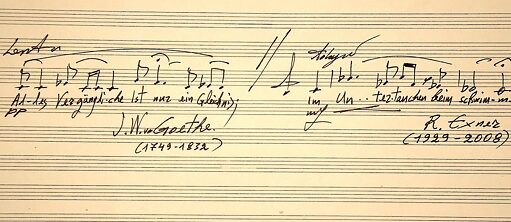 Al-les Vergängli-che Ist nur ein Gleichnis;
pp
J.W.v.Goethe.
(1749-1832)
Im Un-tertauchen beim
mf
R. Exner
(1929-2008)